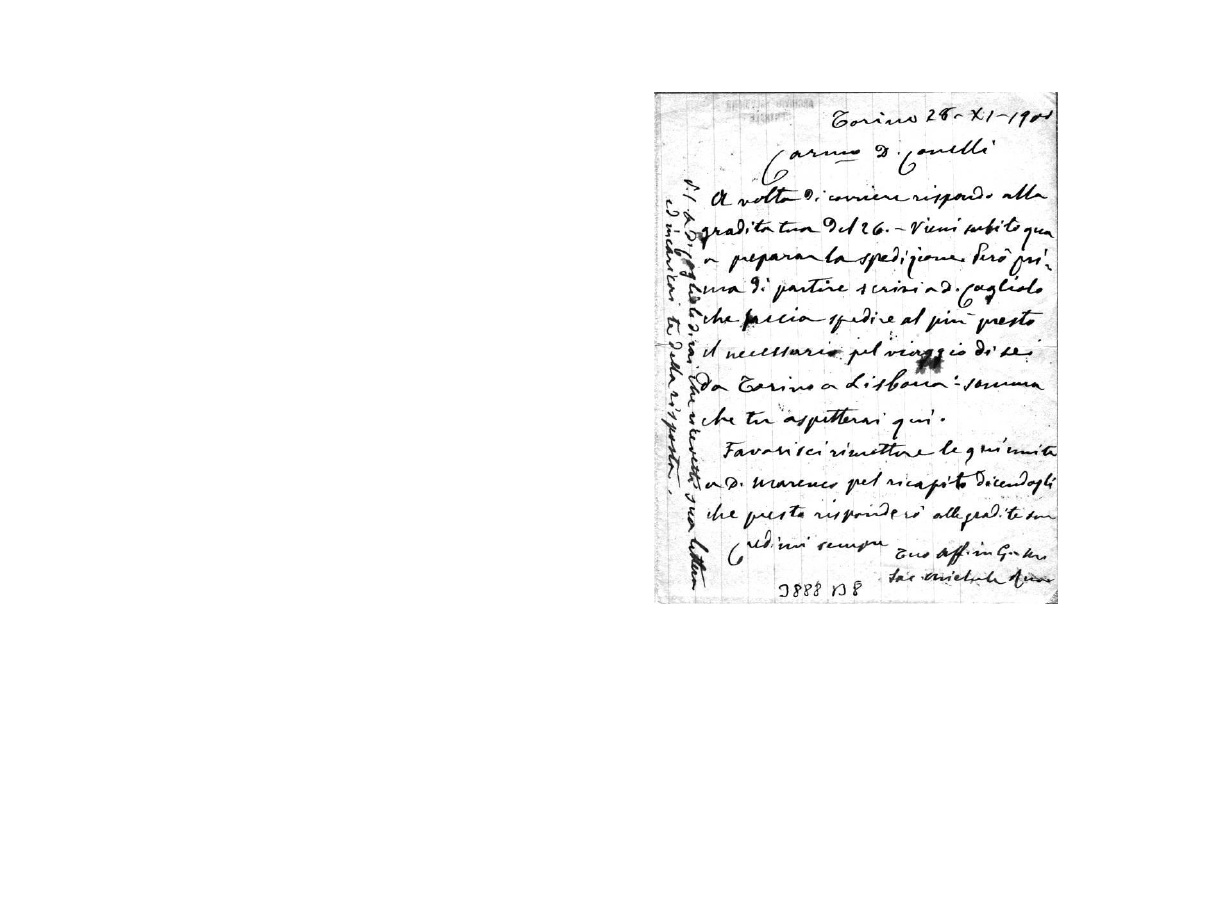 Torino 28-XI-190
Carmo D. Conelli
A volta di corriere rispondo alla
gradita tua del 26. - Vieni subito qua
a preparar la spedizione. Però pri-
ma di partire scrivi a D. Cogliolo
che faccia spedire al più presto
il necessario pel viaggio di sei
da Torino a Lisbona: somma
che tu aspetterai qui.
Favorisci rimettere le qui unite
a D. Marenco pel ricapito dicendogli
che presto risponderò alle gradite sue
Credimi sempre
Tuo Aff.mo G. M.
Sac. Michele Rua
3888 B8
P.S. a D. Cogliolo dirai che ricevetti sua lettera
ed incaricai te della risposta.